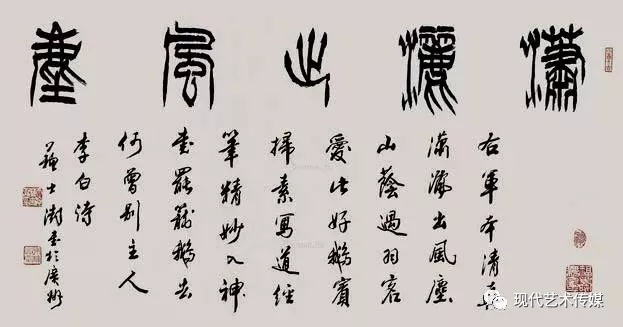 瀟灑出風塵
右軍本清真
瀟灑出風塵
山蔭過羽客
愛此好鵝賓
掃素寫道經
筆精妙入神
書罷籠鵝去
何曾別主人
李白詩
蘇士澍書於廣州
现代艺术传媒